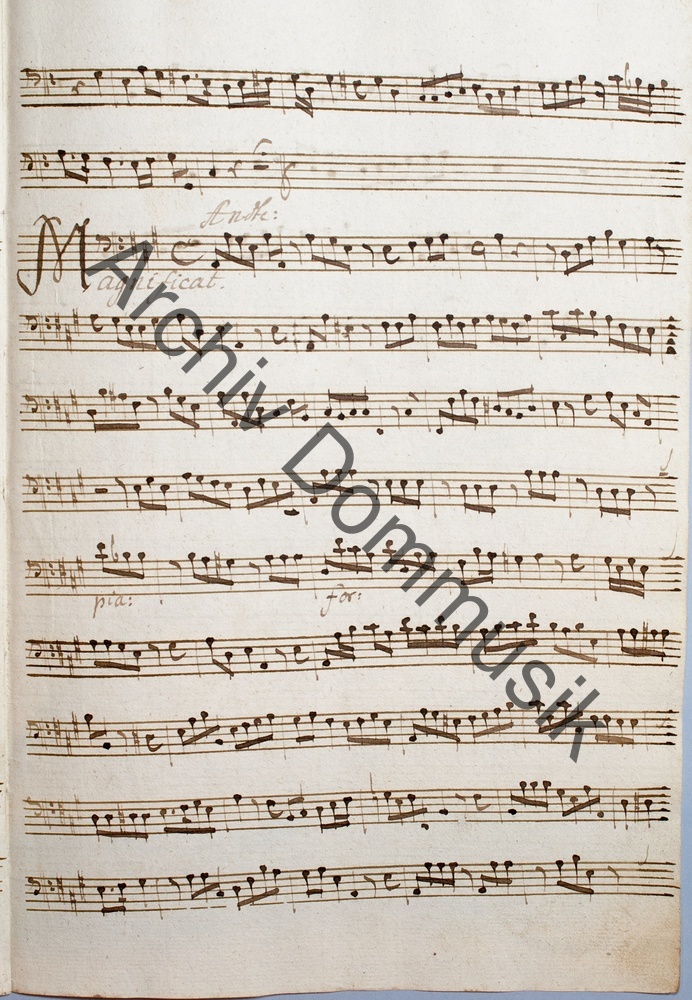 Andte:
Magnificat.
pia: for:
Archiv Dommusik